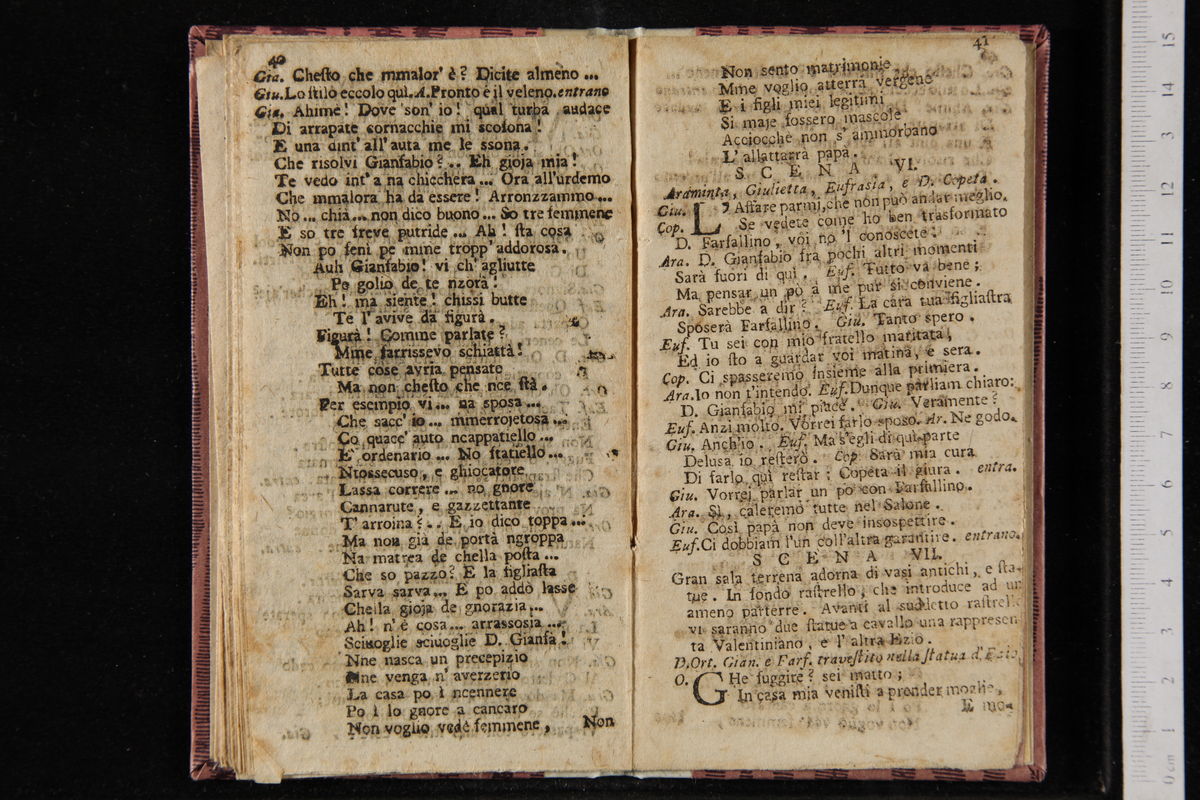 40
Gia. Cheſto che mmalor' è? Dicite almeno ...
Giu. Lo ſtilo eccolo quì. A. Pronto è il veleno. entrano
Gia. Ahimè! Dove son' io! qual turba audace
Di arrapate cornacchie mi scosona!
E una dint' all' auta me le ssona.
Che risolvi Gianfabio? .. Eh gioja mia!
Te vedo int' a na chicchera ... Ora all'urdemo
Che mmalora ha da essere! Arronzzammo ...
No ... chia ... non dico buono ... So tre femmene
E so tre freve putride ... Ah! ſta cosa
Non po fenì pe mme tropp' addorosa.
Auh Gianfabio! vi ch' agliutte
Po golio de te nzorà!
Eh! ma siente! chissi butte
Te l' avive da figurà.
Figurà! Comme parlate?
Mme farrissevo schiattà!
Tutte cose avria pensate
Ma non cheſto che nce ſtà.
Per esempio vi ... na sposa ...
Che sacc' io ... mmerrojetosa ...
Co quacc' auto ncappatiello ...
E' ordenario ... No ſtatiello ...
Ntossecuso, e ghiocatore
Lassa correre ... no gnore
Cannarute, e gazzettante
T' arroina? .. E io dico toppa ...
Ma non già de portà ngroppa
Na matrea de chella poſta ...
Che so pazzo? E la figliaſta
Sarva sarva ... E po addò lasse
Chella gioja de gnorazia ...
Ah! n' è cosa ... arrassosia ...
Sciuoglie sciuoglie D. Gianfa!
Nne nasca un precepizio
Nne venga n' averzerio
La casa po i ncennere
Po i lo gnore a cancaro
Non voglio vedè femmene,
Non
41
Non sento matrimonie
Mme voglio atterrà vergene
E i figli miei legitimi
Si maje fossero mascole
Acciocchè non s' ammorbano
L' allattarrà papà.
SCENA VI.
Araminta, Giulietta, Eufrasia, e D. Copeta.
Giu. L' Affare parmi, che non può andar meglio.
Cop. Se vedete come ho ben trasformato
D. Farfallino, voi no 'l conoscete!
Ara. D. Gianfabio fra pochi altri momenti
Sarà fuori di quì. Euf. Tutto và bene;
Ma pensar un pò a me pur si conviene.
Ara. Sarebbe a dir? Euf. La cara tua figliaſtra
Sposerà Farfallino. Giu. Tanto spero.
Euf. Tu sei con mio fratello maritata,
Ed io ſto a guardar voi matina, e sera.
Cop. Ci spasseremo insieme alla primiera.
Ara. Io non t'intendo. Euf. Dunque parliam chiaro:
D. Gianfabio mi piace. Giu. Veramente?
Euf. Anzi molto. Vorrei farlo sposo. Ar. Ne godo.
Giu. Anch'io. Euf. Ma s'egli di quì parte
Delusa io reſterò. Cop. Sarà mia cura
Di farlo quì reſtar: Copeta il giura. entra.
Giu. Vorrei parlar un pò con Farfallino.
Ara. Sì, caleremo tutte nel Salone.
Giu. Così papà non deve insospettire.
Euf. Ci dobbiam l'un coll'altra garantire. entrano.
SCENA VII.
Gran sala terrena adorna di vasi antichi, e ſta-
tue. In fondo raſtrello, che introduce ad un
ameno parterre. Avanti al suddetto raſtrello
vi saranno due ſtatue a cavallo una rappresen
ta Valentiniano, e l' altra Ezio.
D. Ort. Gian. e Farf. traveſtito nella ſtatua d' Ezio.
O. CHe fuggire? sei matto;
In casa mia veniſti a prender moglie,
E mo-